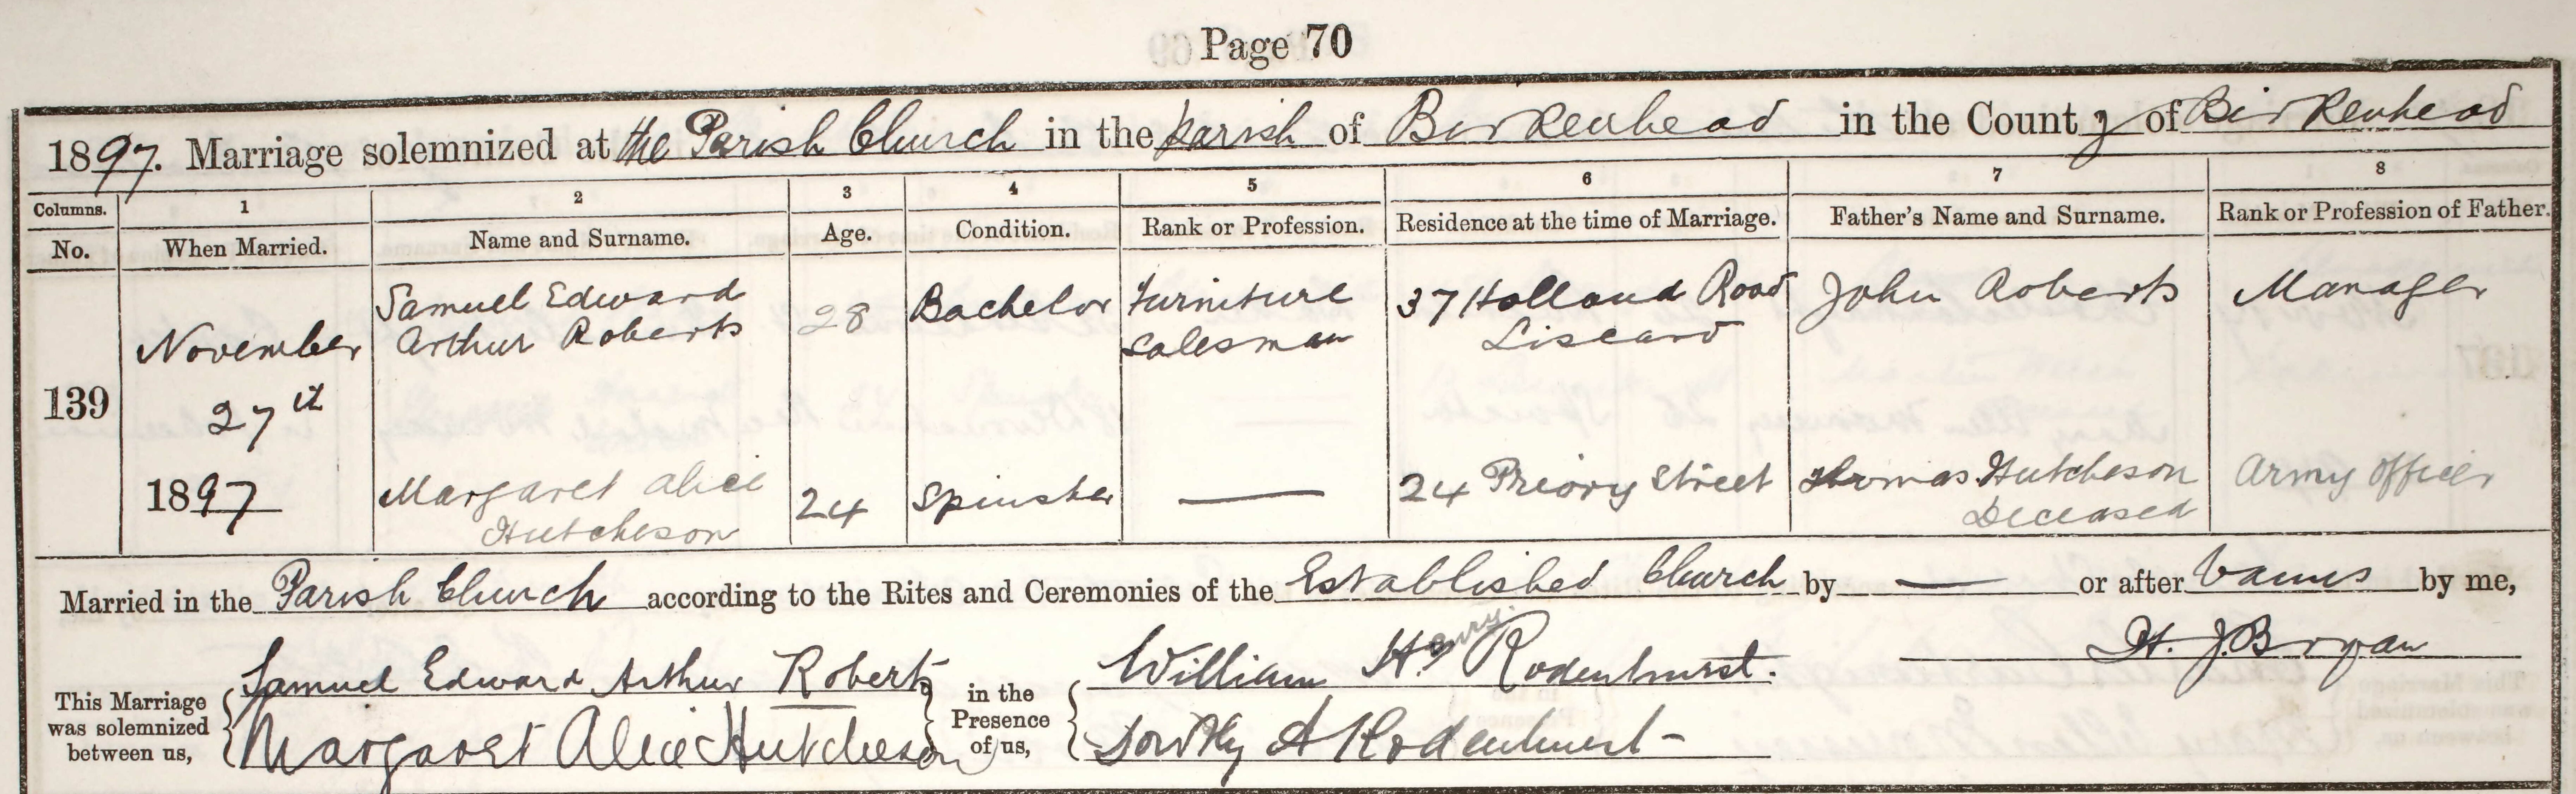 Page 70
1897. Marriage solemnized at the Parish Church in the parish of Birkenhead in the County of Birkenhead
Columns. 1 2 3 4 5 6 7 8
No. When Married. Name and Surname. Age. Condition. Rank or Profession. Residence at the time of Marriage. Father's Name and Surname. Rank or Profession of Father.
Samuel Edward 28 Bachelor Furniture 37 Holland Road John Roberts Manager
November Arthur Roberts salesman Liscard
139 27th
1897 Margaret Alice 24 Spinster — 24 Priory Street Thomas Hutcheson Army Officer
Hutcheson Deceased
Married in the Parish Church according to the Rites and Ceremonies of the Established Church by — or after Banns by me,
H. J. Bryan
This Marriage was solemnized between us,
Samuel Edward Arthur Roberts
Margaret Alice Hutcheson
in the Presence of us,
William Hy Henry Rodenhurst.
Dorothy A Rodenhurst